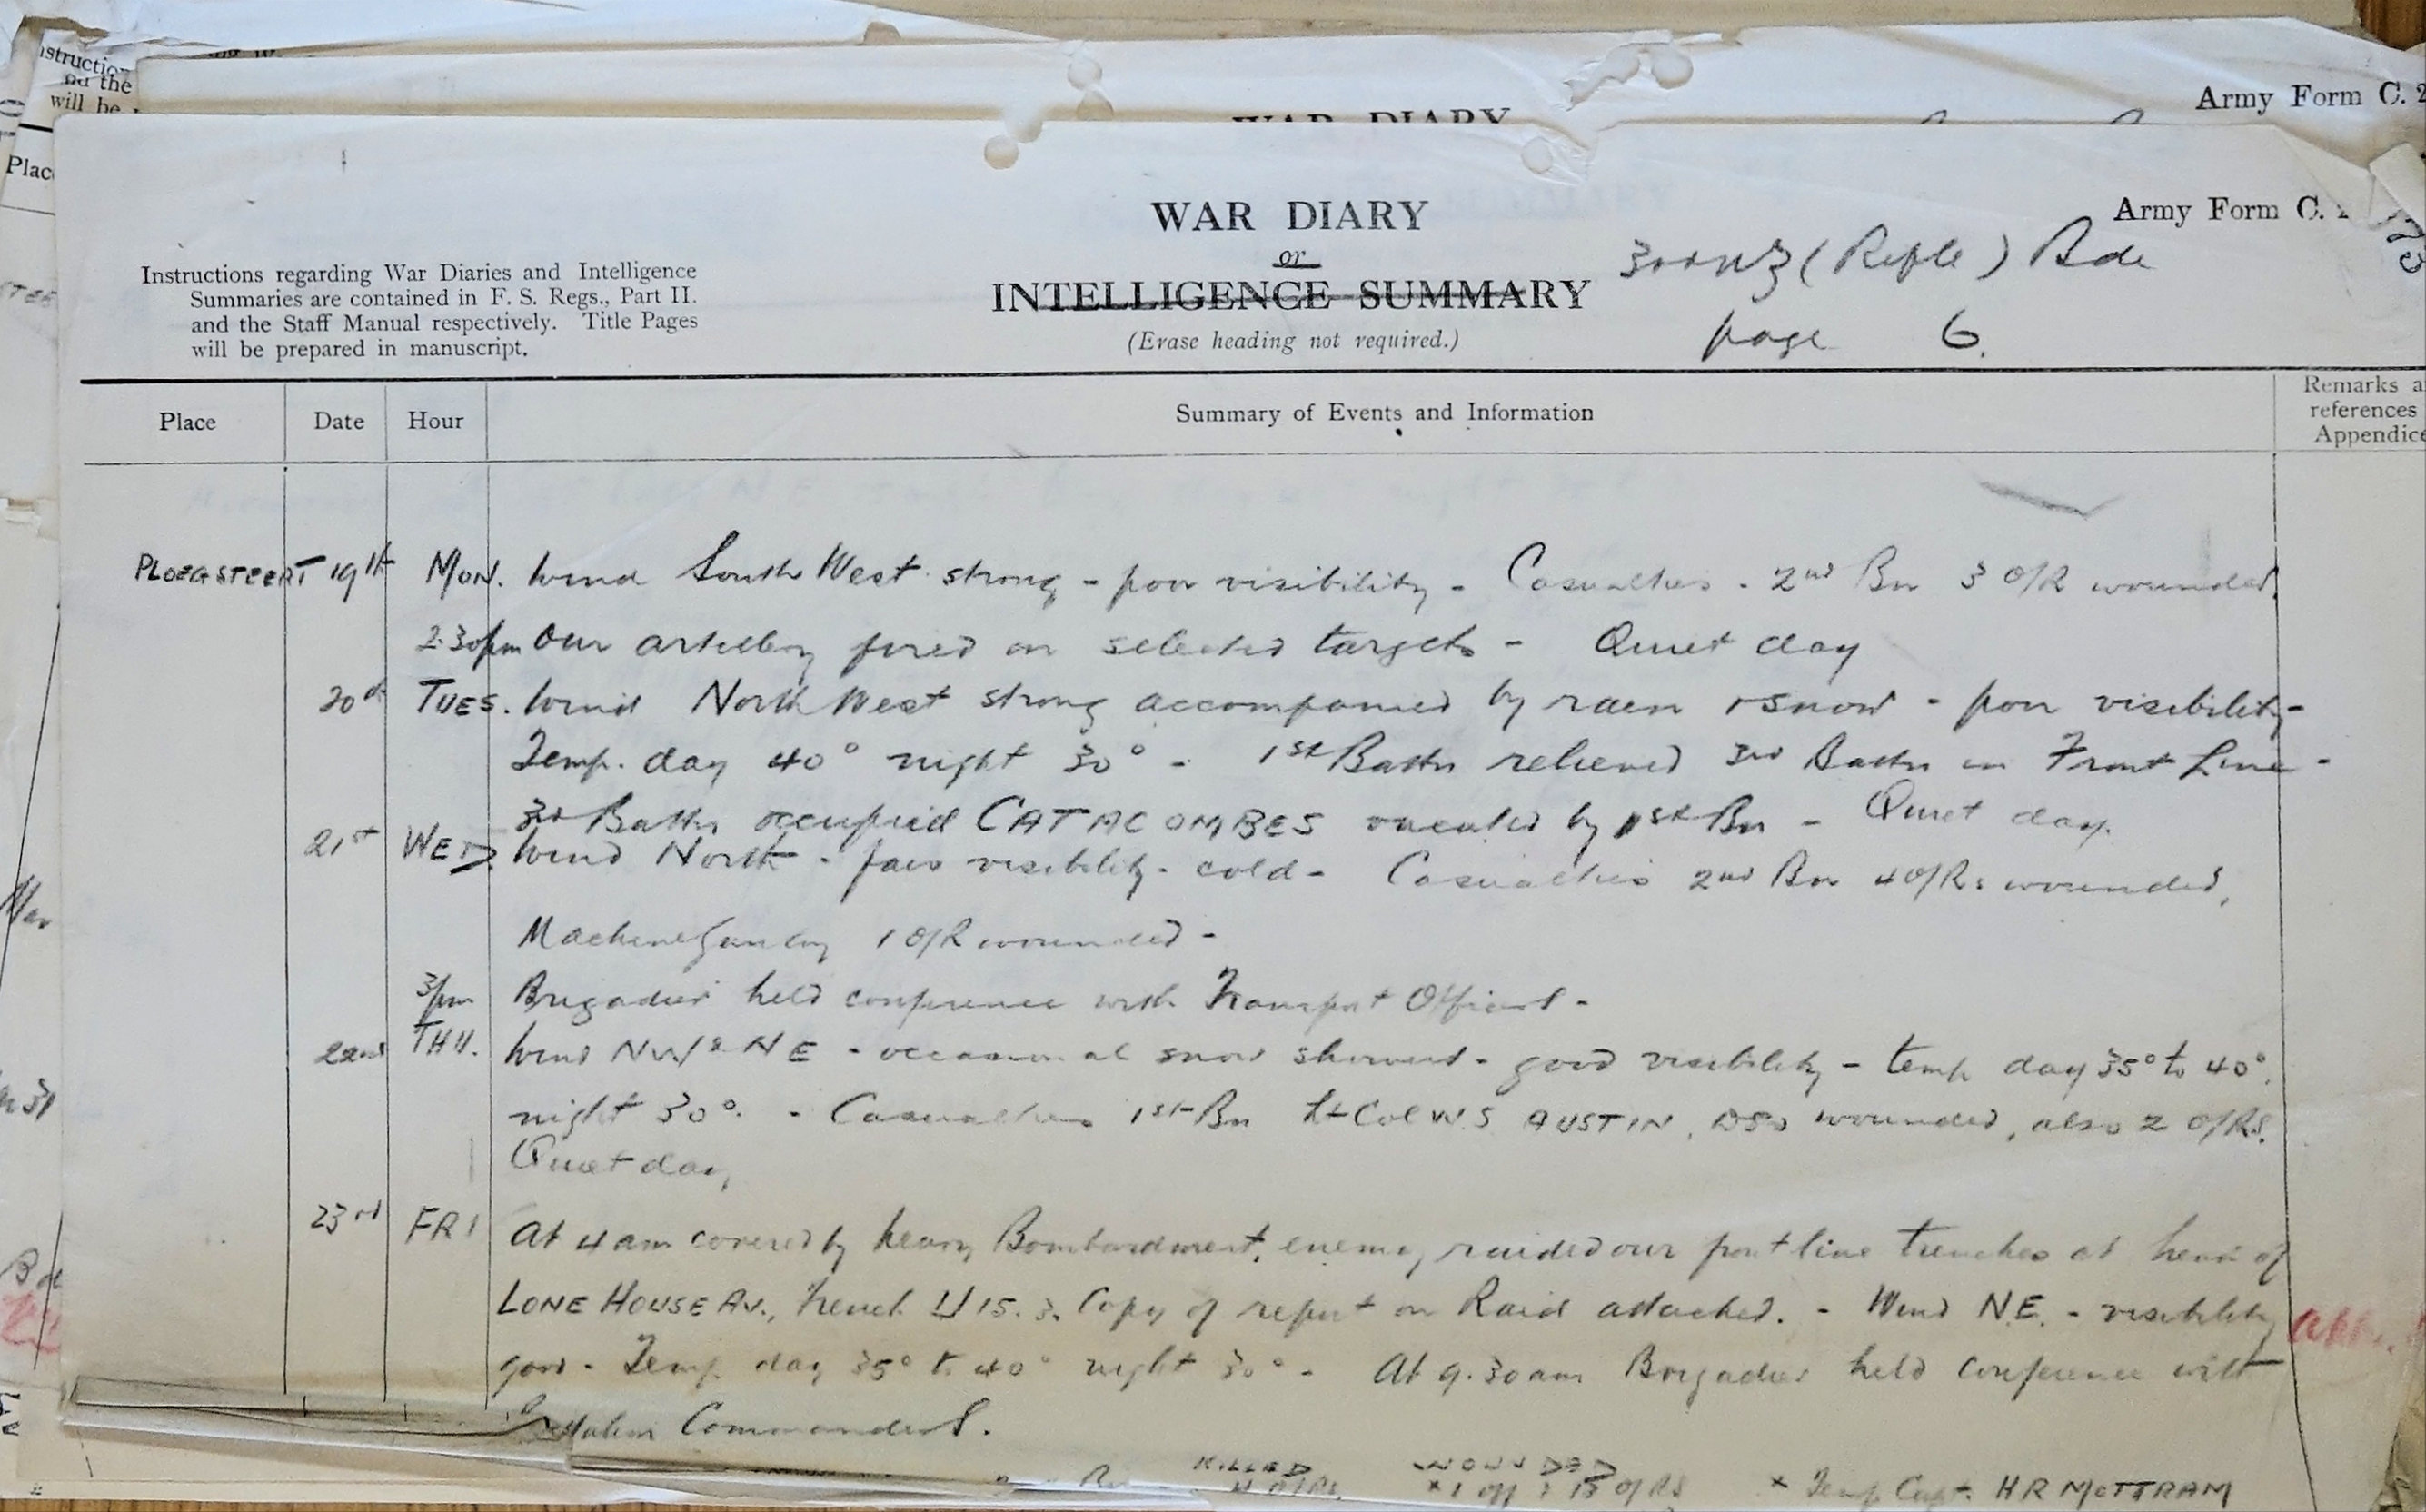 struction
nd the
will be
Place
WAR DIARY
Army Form C. 2
WAR DIARY
or
INTELLIGENCE SUMMARY
(Erase heading not required.)
Army Form C.
3rd NZ (Rifle) Bde
page 6.
Instructions regarding War Diaries and Intelligence
Summaries are contained in F. S. Regs., Part II.
and the Staff Manual respectively. Title Pages
will be prepared in manuscript.
Place Date Hour Summary of Events and Information Remarks a
references
Appendice
PLOEGSTEERT 19th MON. Wind South West strong - poor visibility - Casualties - 2nd Bn 3 O/R wounded.
2.30pm Our artillery fired on selected targets - Quiet day
20th TUES. Wind North West strong accompanied by rain & snow - poor visibility -
Temp. day 40° night 30° - 1st Battn relieved 3rd Battn in Front Line -
3rd Battn occupied CATACOMBES vacated by 1st Bn - Quiet day.
21st WED Wind North - fair visibility - cold - Casualties 2nd Bn 4 O/Rs wounded,
Machine Gun Coy 1 O/R wounded -
3pm Brigadier held conference with Transport Officers -
22nd THU. Wind NW & NE - occasional snow showers - good visibility - temp day 35° to 40°.
night 30°. - Casualties 1st Bn Lt Col W.S AUSTIN, DSO wounded, also 2 O/Rs.
Quiet day
23rd FRI At 4 am covered by heavy Bombardment, enemy raided our front line trenches at head of
LONE HOUSE AV., trench U 15. 3. Copy of report on Raid attached. - Wind N.E. - visibility
good - Temp. day 35° to 40° night 30° - At 9.30 am Brigadier held conference with
Battalion Commanders.
KILLED WOUNDED
4 O/Rs. * 1 off & 15 O/Rs * Temp Capt. H R MOTTRAM